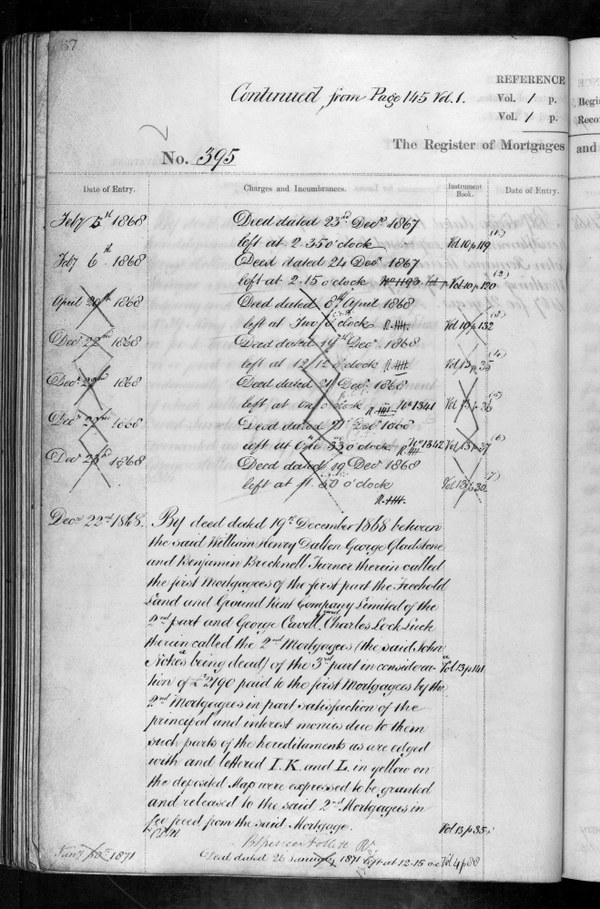 REFERENCE
Continued from Page 145 Vol. 1.
Vol. 1 p.
Vol. 1 p.
The Register of Mortgages
and
No. 395
Date of Entry.
Charges and Incumbrances.
Instrument Book.
Date of Entry.
Feby 5th 1868
Deed dated 23rd Decr 1867
left at 2.35 o'clock
Vol 10 p 119
(1)
Feby 6th 1868
Deed dated 24 Decr 1867
left at 2.15 o'clock
Vol. 10 p. 120
(2)
April 29th 1868
Deed dated 8th April 1868
left at Two o'clock
Vol 10 p. 132
(3)
Decr 22nd 1868
Deed dated 19th Decr 1868
left at 12/12 o'clock
Vol 13 p. 35
(4)
Decr 22nd 1868
Deed dated 21 Decr 1868
left at One o'clock No 1341
Vol 13 p. 36
(5)
Decr 22nd 1868
Deed dated 21st Decr 1868
left at One 33 o'clock No 1342
Vol. 13 p. 37
(6)
Decr 23rd 1868
Deed dated 19 Decr 1868
left at 11.50 o'clock
(7)
Decr 22nd 1868.
By deed dated 19th December 1868 between
the said William Henry Dalton George Gladstone
and Benjamin Brecknell Turner therein called
the first Mortgagees of the first part the Freehold
Land and Ground Rent Company Limited of the
2nd part and George Cavell and Charles Lock Luck
therein called the 2nd Mortgagees (the said John
Nokes being dead) of the 3rd part in considera-
Vol. 13 p. 141
tion of £2190 paid to the first Mortgagees by the
2nd Mortgagees in part satisfaction of the
principal and interest monies due to them
such parts of the hereditaments as are edged
with and lettered I. K. and L. in yellow on
the deposited Map were expressed to be granted
and released to the said 2nd Mortgagees in
fee freed from the said Mortgage.
Vol 13 p 35
Jany 30th 1871
Deed dated 26 January 1871 left at 12.15